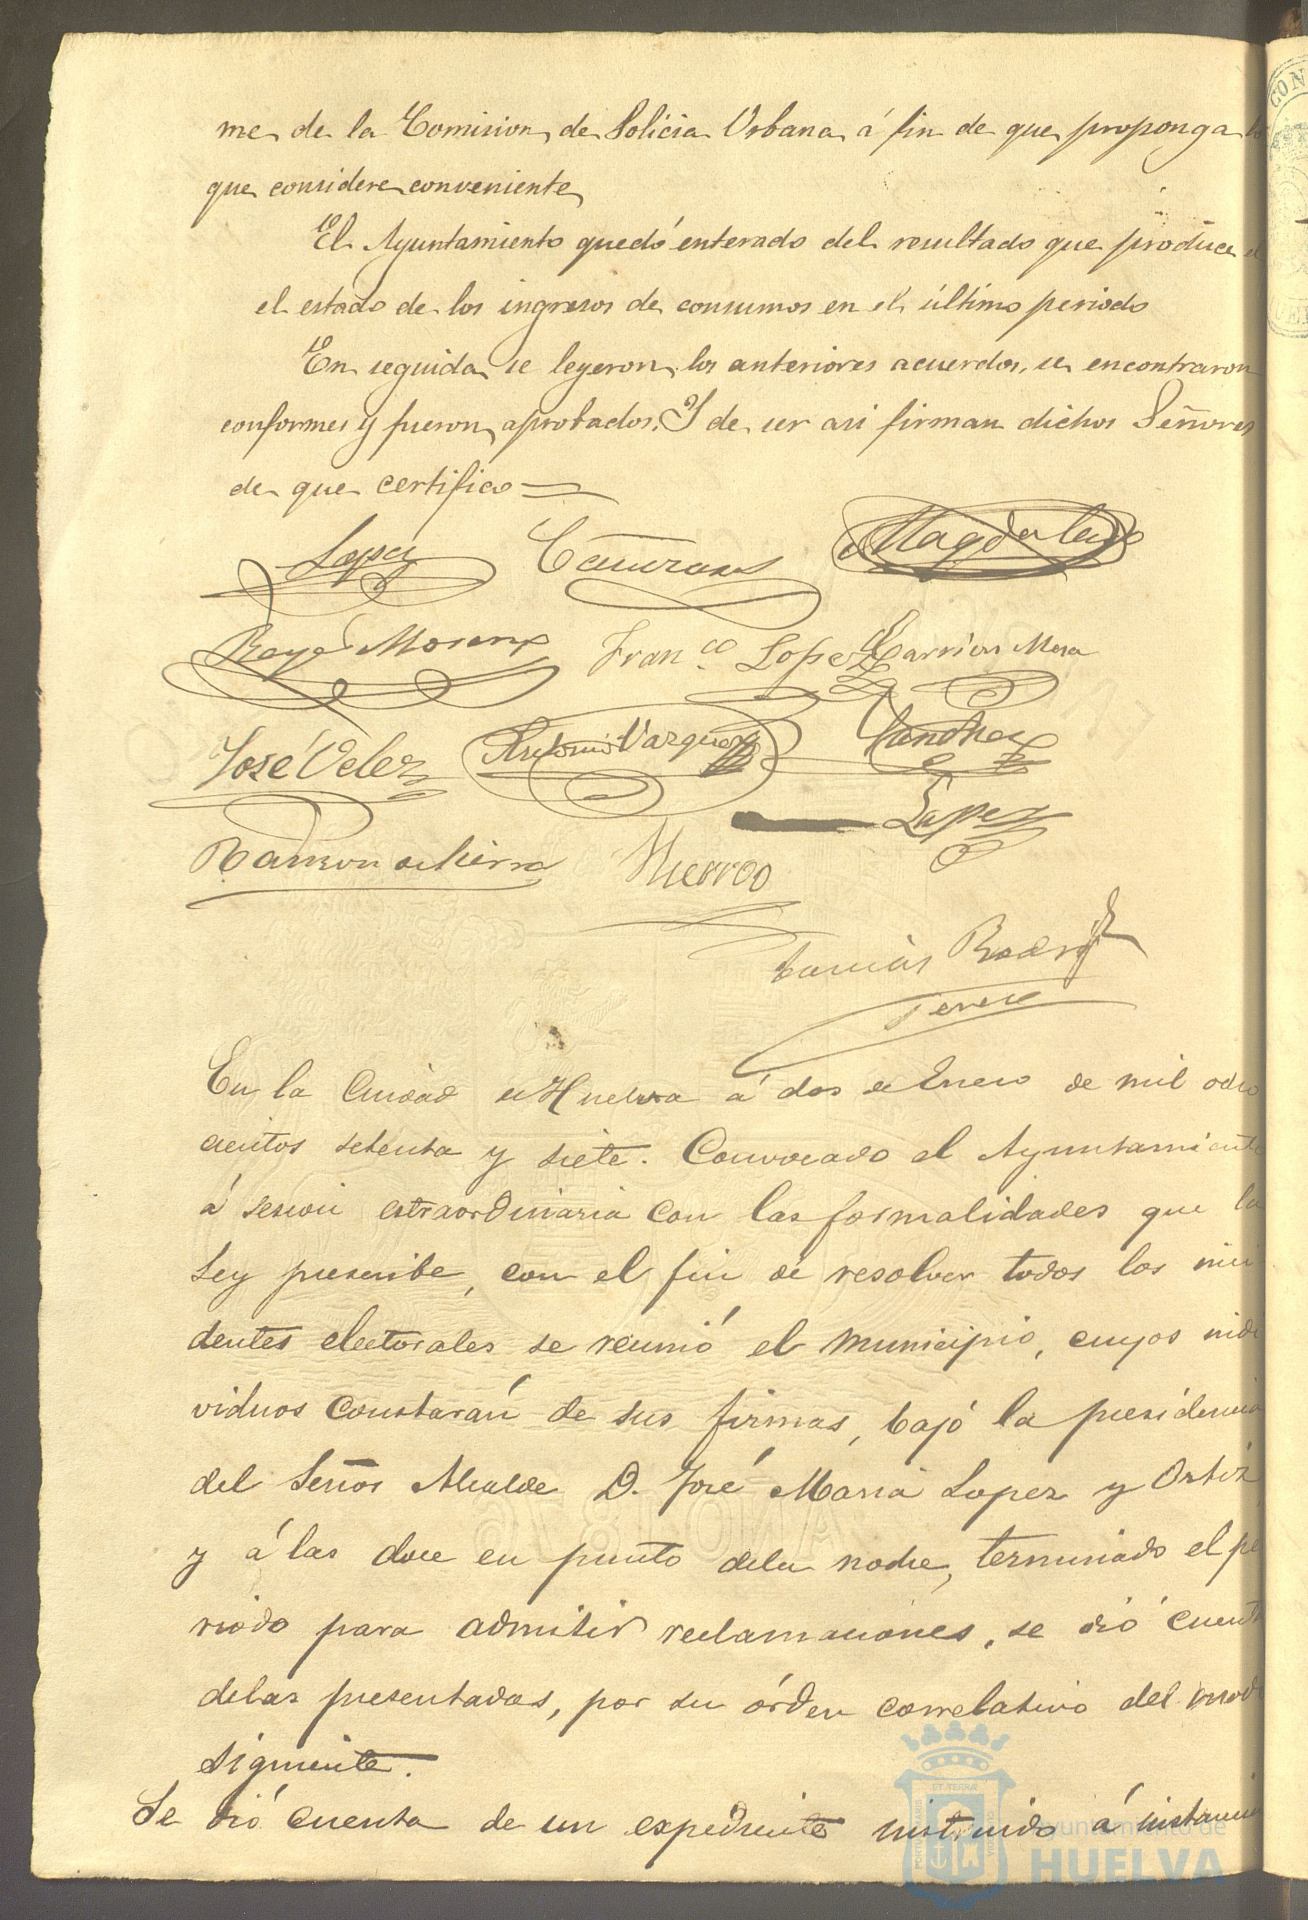 me de la Comision de Policia Urbana á fin de que proponga lo
que considere conveniente
El Ayuntamiento quedó enterado del resultado que produce el
el estado de los ingresos de consumos en el último periodo
En seguida se leyeron los anteriores acuerdos, se encontraron
conformes y fueron aprobados. Y de ser asi firman dichos Señores
de que certifico=
Lopez
Magdaleno
Moreno
Fran.co Lopez
Carrion Mora
José Velez
Antonio Vazquez
Sanchez
Lopez
Ramon de Sierra
Hierro
Perez
En la Ciudad de Huelva á dos de Enero de mil ocho
cientos setenta y siete. Convocado el Ayuntamiento
á sesion estraordinaria con las formalidades que la
Ley prescribe, con el fin de resolver todos los inci
dentes electorales se reunió el Municipio, cuyos indi
viduos constarán de sus firmas, bajó la presidencia
del Señor Alcalde D. José Maria Lopez y Ortiz
y á las doce en punto dela noche, terminado el pe
riodo para admitir reclamaciones, se dió cuenta
delas presentadas, por su órden correlativo del modo
siguiente.
Se dió cuenta de un expediente instruido á instancia
Ayuntamiento de
HUELVA